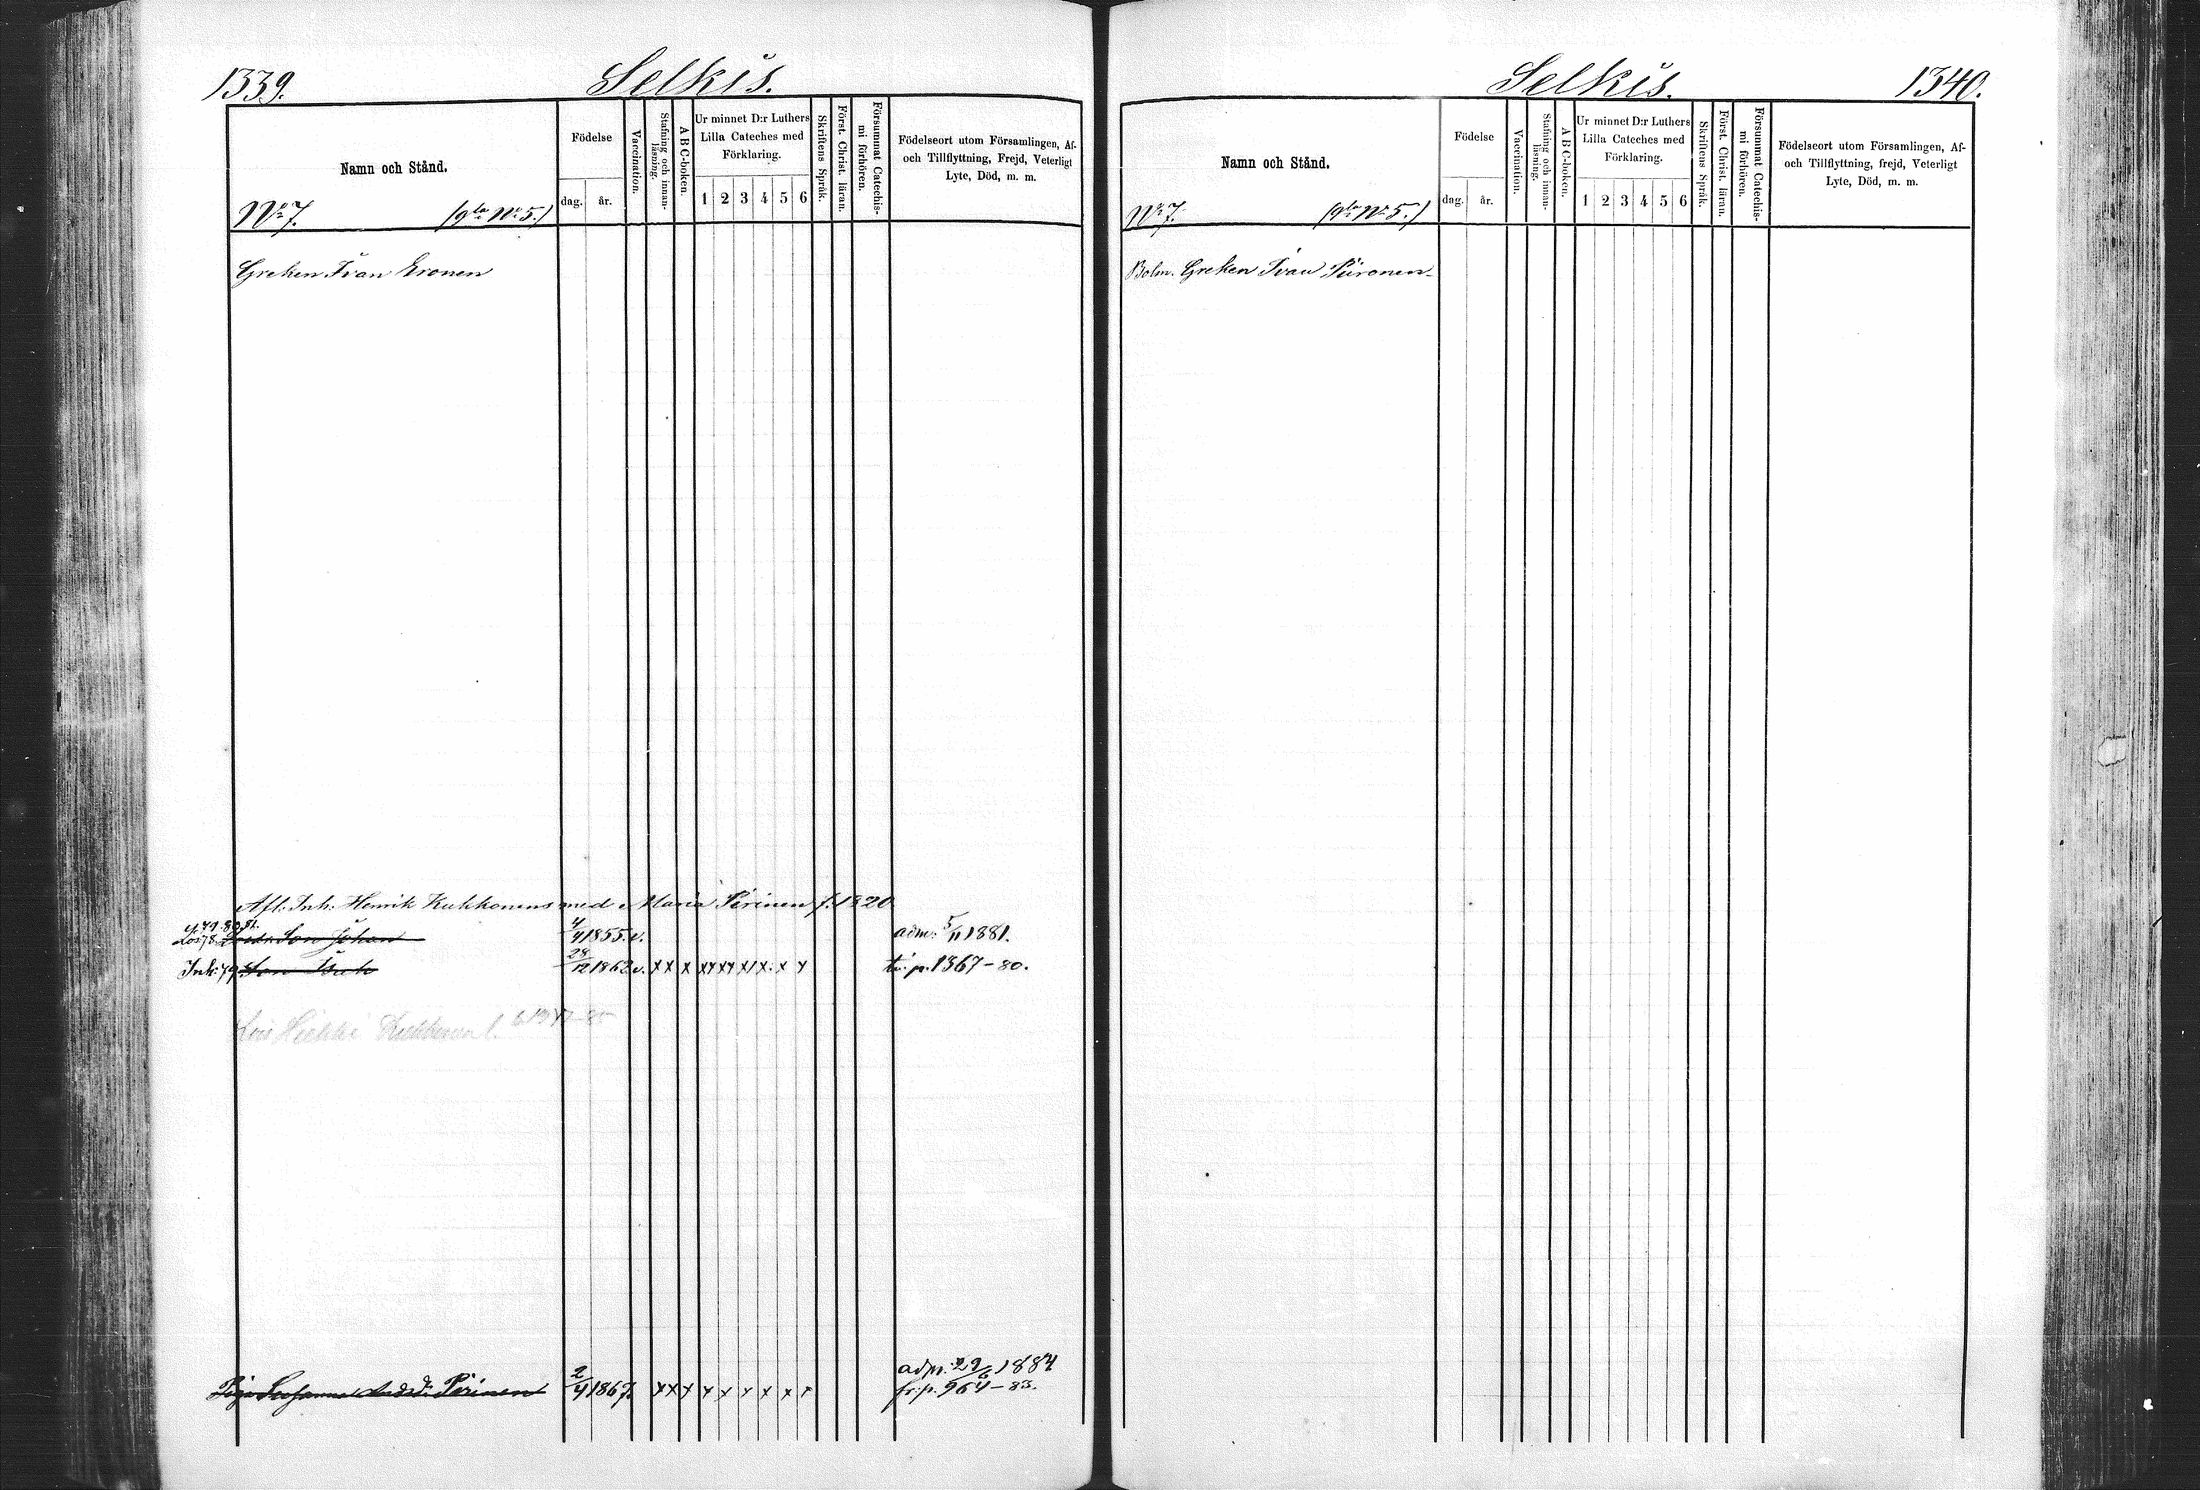 1339.
Selkis.
Namn och Stånd.
Födelse
dag.
år.
Vaccination.
Stafning och innan-
läsning.
ABC-boken.
Ur minnet D:r Luthers
Lilla Cateches med
Förklaring.
1 2 3 4 5 6
Skriftens Språk.
Först. Christ. läran.
Försummat Catechis-
mi förhören.
Födelseort utom Församlingen, Af-
och Tillflyttning, Frejd, Veterligt
Lyte, Död, m. m.
No 7. (gla No 5.)
Greken Ivan Eronen
Afl: Inh: Henrik Kukkonens med Maria Pirinen f. 1820
y. 79. 80. 81.
Son Johan 4/4 1855. v. adm: 5/11 1881.
Inh: 79 Son Isak 28/12 1862 v. x x x x x x x x x x x tr: p. 1367-80.
Heikki Kukkonen
adpr: 29/6 1884
Piga Susanna And:dr Pirinen 2/4 1867. x x x x x x x x x fr: p. 964-83.
Selkis.
1340.
Namn och Stånd.
Födelse
dag.
år.
Vaccination.
Stafning och innan-
läsning.
ABC-boken.
Ur minnet D:r Luthers
Lilla Cateches med
Förklaring.
1 2 3 4 5 6
Skriftens Språk.
Först. Christ. läran.
Försummat Catechis-
mi förhören.
Födelseort utom Församlingen, Af-
och Tillflyttning, frejd, Veterligt
Lyte, Död, m. m.
No 7. (gla No 5.)
Bolm. Greken Ivan Piironen